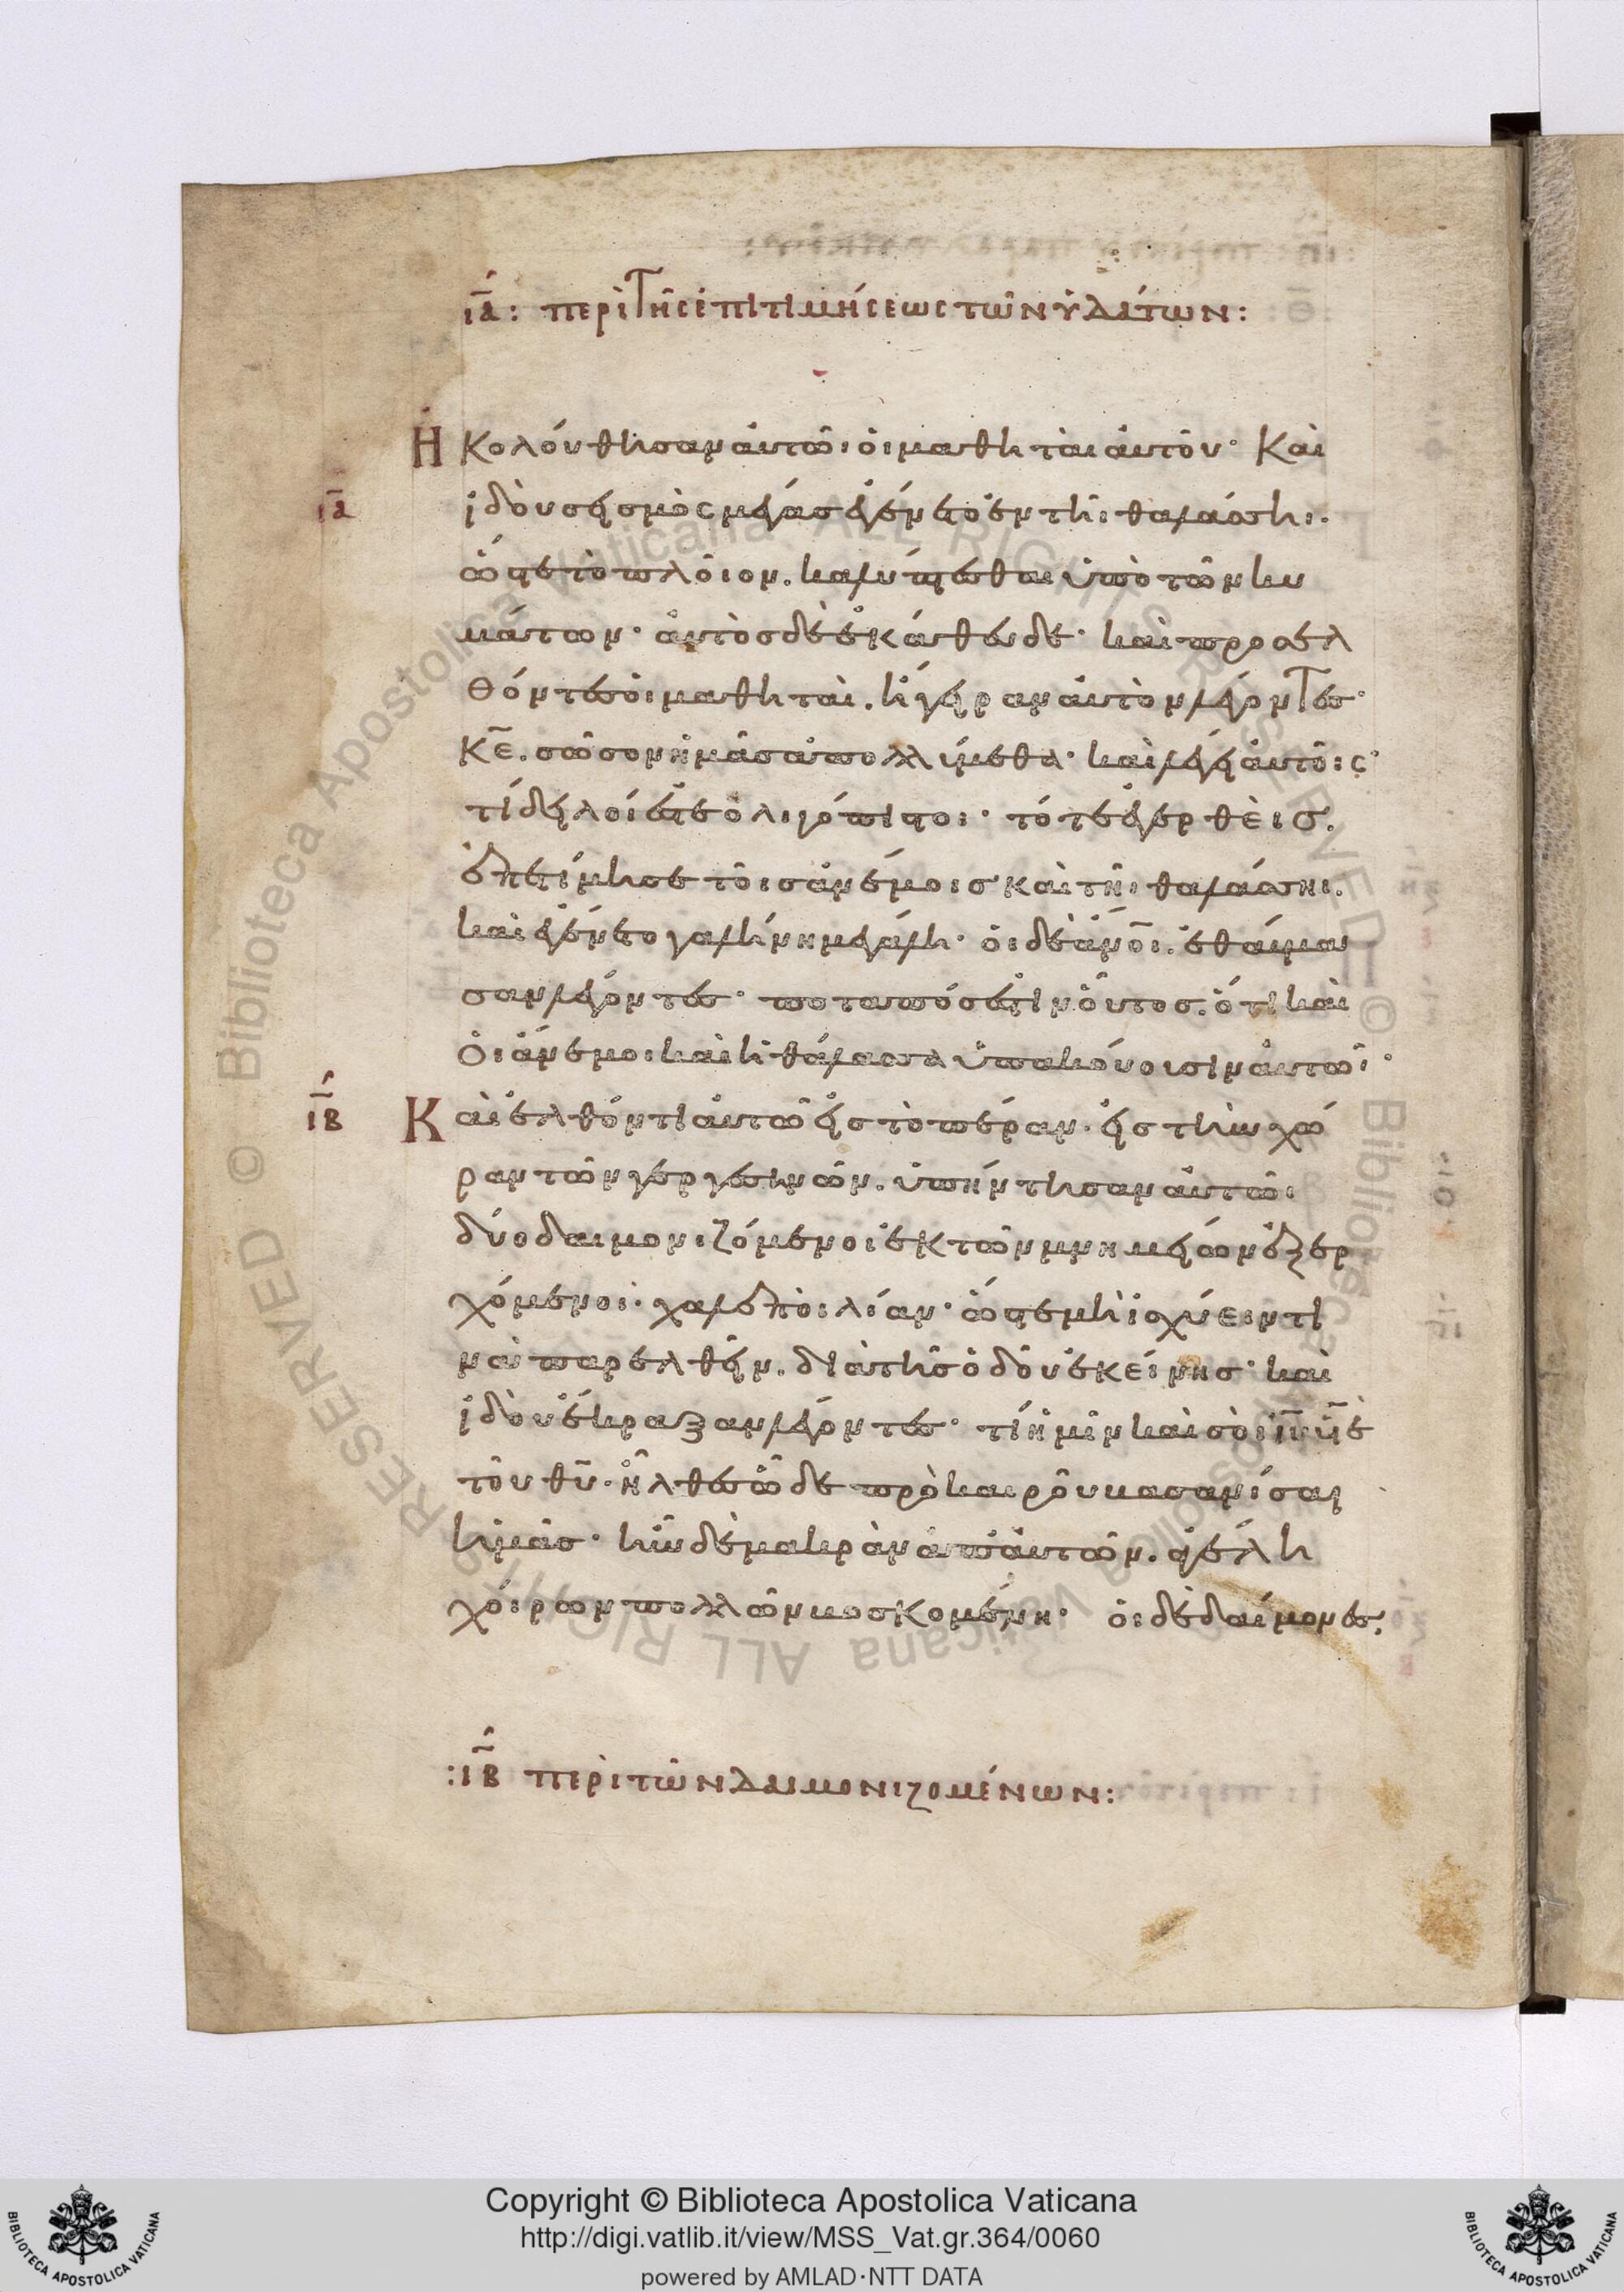 ια: περὶ τῆς ἐπιτιμήσεως τῶν ὑδάτων:
Ἠκολούθησαν αὐτῶι οἱ μαθηταὶ αὐτοῦ· Καὶ
ια
ἰδοὺ σεισμὸς μέγας ἐγένετο ἐν τῆι θαλάσσηι·
ὥστε τὸ πλοῖον. καλύπτεσθαι ὑπὸ τῶν κυ
μάτων· αὐτὸς δὲ ἐκάθευδε· καὶ προσελ
θόντες οἱ μαθηταὶ. ἤγειραν αὐτὸν λέγοντες·
κ̅ε̅. σῶσον ἡμᾶς ἀπολλύμεθα· καὶ λέγει αὐτοῖς·
τί δειλοί ἐστε ὀλιγόπιστοι· τότε ἐγερθεὶς.
ἐπετίμησε τοῖς ἀνέμοις καὶ τῆι θαλάσσηι.
καὶ ἐγένετο γαλήνη μεγάλη· οἱ δὲ ἄν̅ο̅ι̅. ἐθαύμα
σαν λέγοντες· ποταπός ἐστιν οὗτος. ὅτι καὶ
οἱ ἄνεμοι καὶ ἡ θάλασσα ὑπακούουσιν αὐτῶι·
ιβ
Καὶ ἐλθόντι αὐτῶ εἰς τὸ πέραν. εἰς τὴν χώ
ραν τῶν γεργεσηνῶν. ὑπήντησαν αὐτῶι
δύο δαιμονιζόμενοι ἐκ τῶν μνημείων ἐξερ
χόμενοι. χαλεποὶ λίαν· ὥστε μὴ ἰσχύειν τι
νὰ παρελθεῖν. διὰ τῆς ὁδοῦ ἐκείνης· καὶ
ἰδοὺ ἔκραξαν λέγοντες· τί ἡμῖν καὶ σοὶ ι̅υ̅ υ̅ἱὲ
τοῦ θ̅υ̅. ἦλθες ὧδε πρὸ καιροῦ βασανίσαι
ἡμᾶς· ἦν δὲ μακρὰν ἀπ' αὐτῶν. ἀγέλη
χοίρων πολλῶν βοσκομένη· οἱ δὲ δαίμονες.
:ιβ περὶ τῶν δαιμονιζομένων:
© Biblioteca Apostolica Vaticana ALL RIGHTS RESERVED
Copyright © Biblioteca Apostolica Vaticana
http://digi.vatlib.it/view/MSS_Vat.gr.364/0060
powered by AMLAD·NTT DATA
BIBLIOTECA APOSTOLICA VATICANA
BIBLIOTECA APOSTOLICA VATICANA